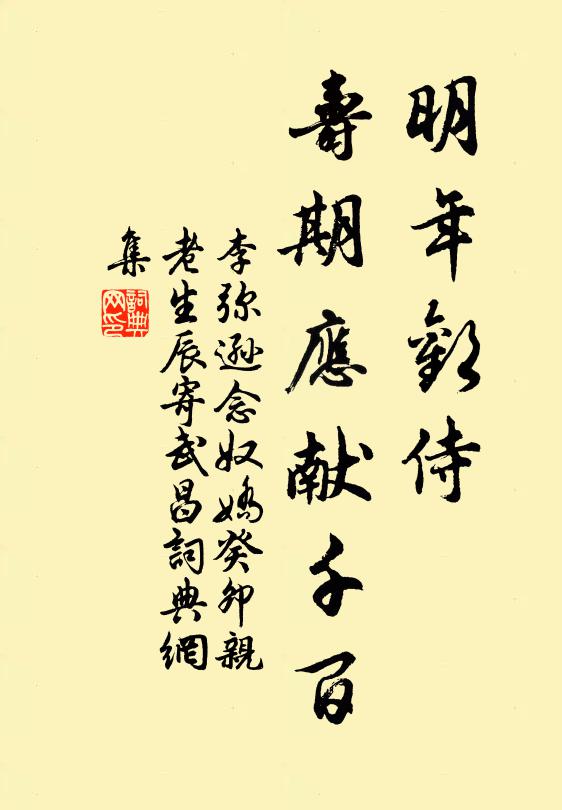 明年歡侍
壽期應献千百
李弥遜念奴嬌癸卯親
老生辰寄武昌詞典網
集
詞典
网印